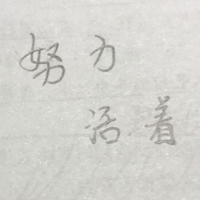 努力
活着